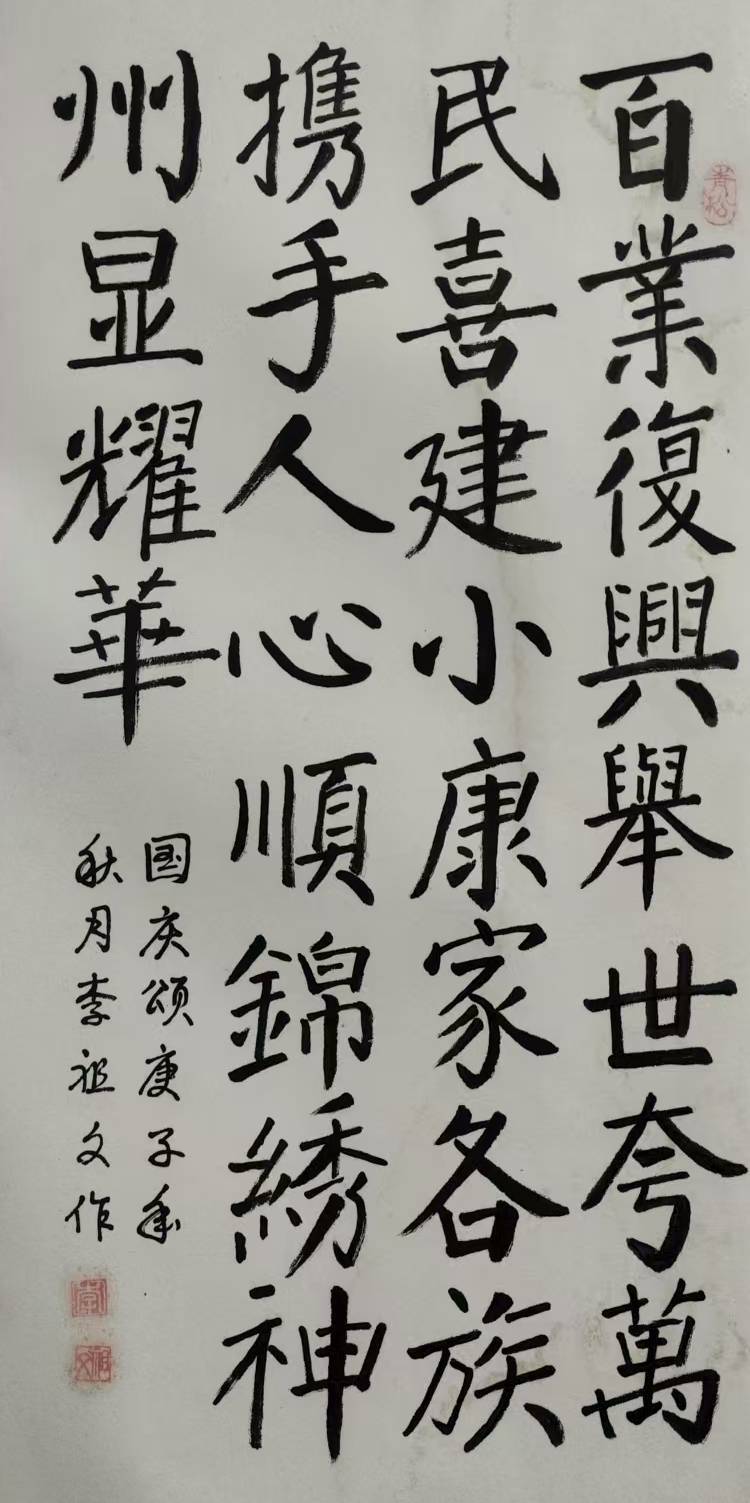 百業復興舉世夸萬
民喜建小康家各族
携手人心順錦綉神
州显耀華
国庆颂庚子年
秋月李祖文作
青松